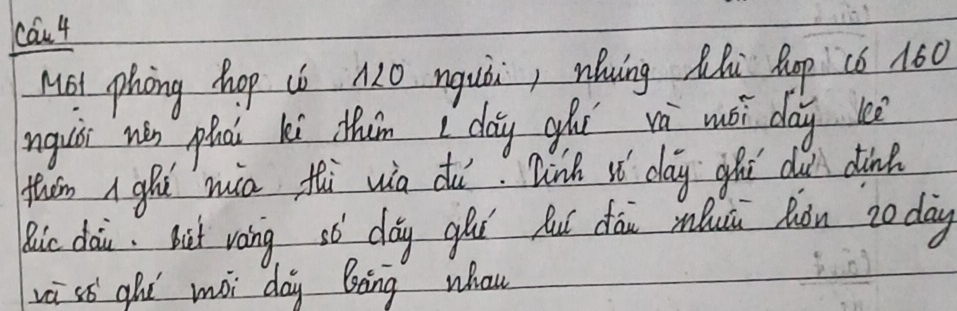 Câu 4
Một phòng họp có 120 người, nhưng khi họp có 160
người nên phải kê thêm 2 dãy ghế và mỗi dãy kê
thêm 1 ghế nữa thì vừa đủ. Tính số dãy ghế dự định
lúc đầu. Biết rằng số dãy ghế lúc đầu nhiều hơn 20 dãy
và số ghế mỗi dãy bằng nhau